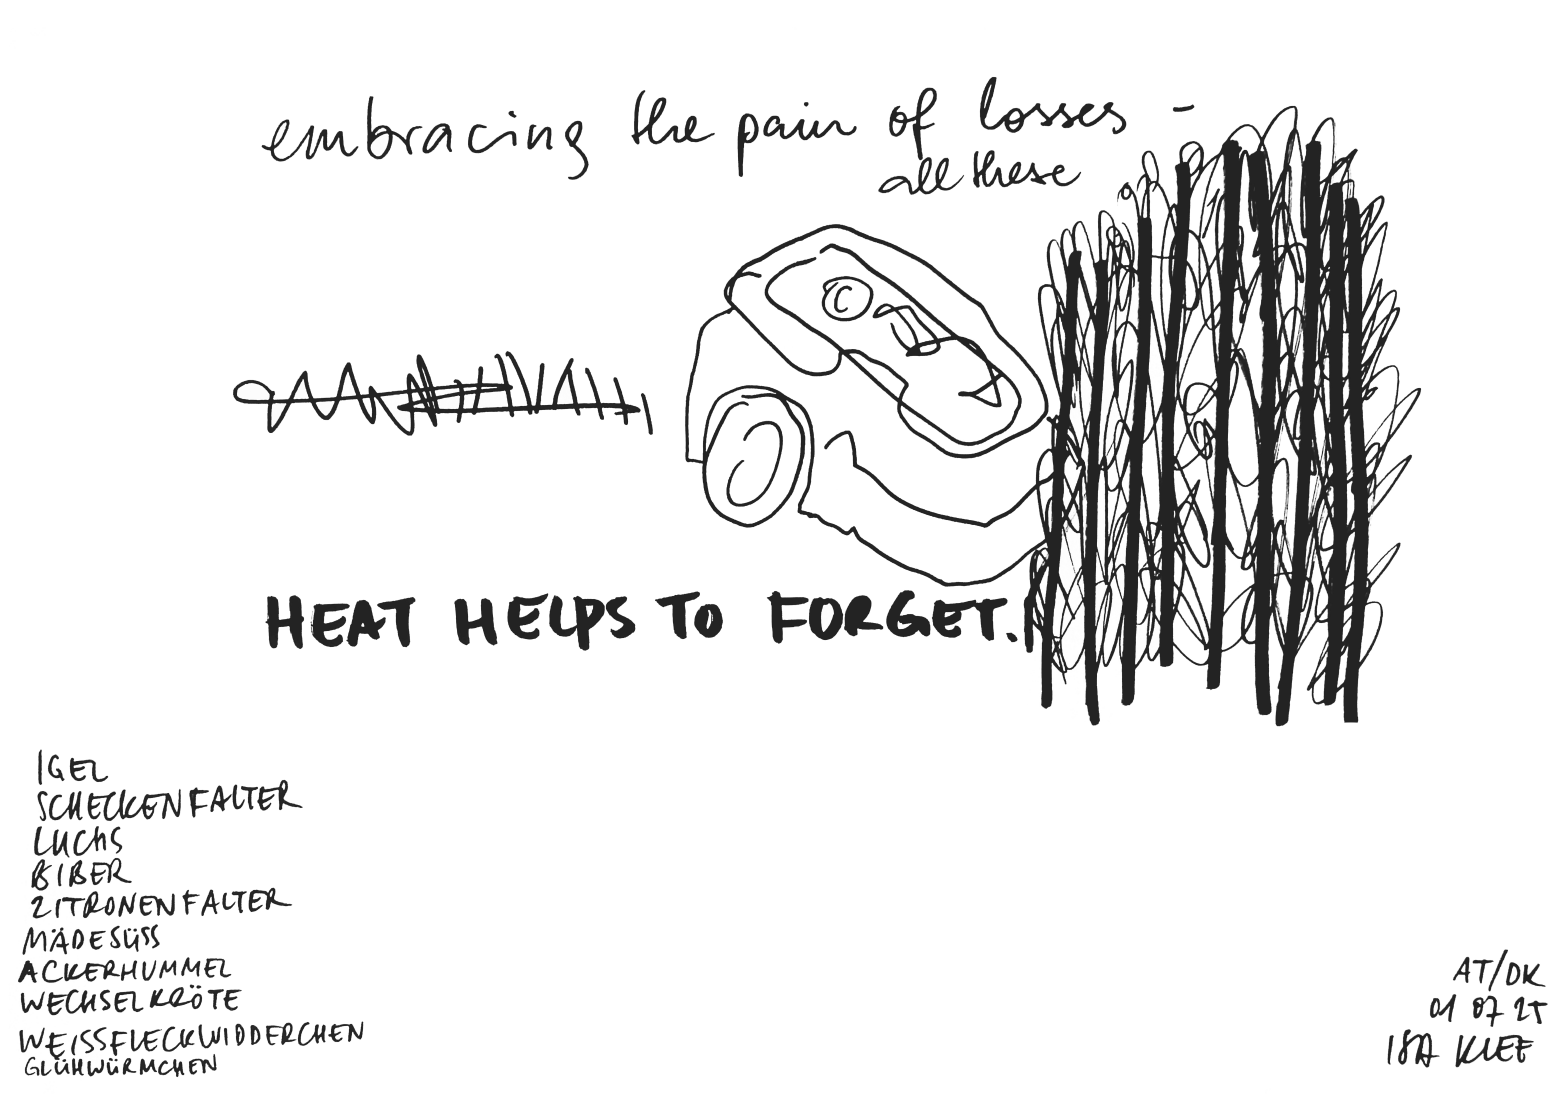 embracing the pain of losses -
all these
HEAT HELPS TO FORGET.
IGEL
SCHECKENFALTER
LUCHS
BIBER
ZITRONENFALTER
MÄDESÜSS
ACKERHUMMEL
WECHSELKRÖTE
WEISSFLECKWIDDERCHEN
GLÜHWÜRMCHEN
AT/DK
01 07 25
ISA KLEE